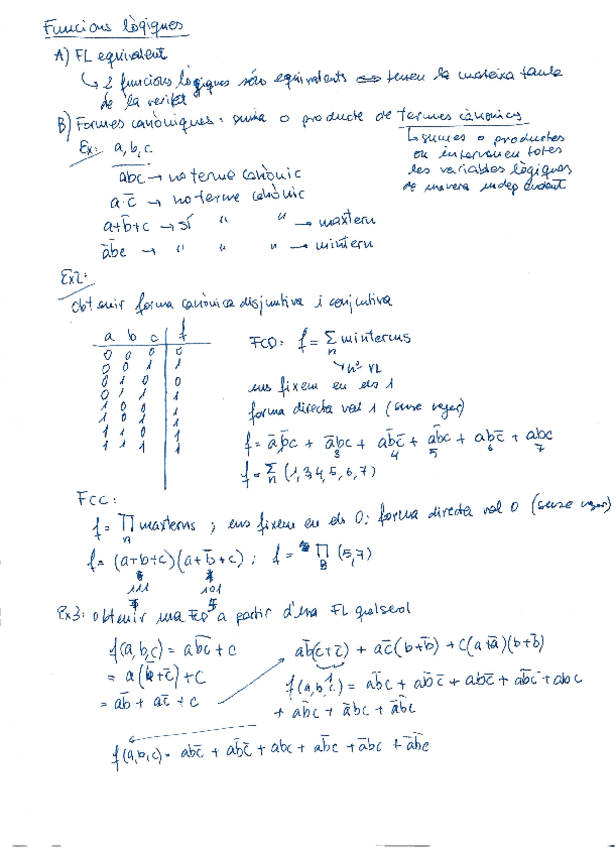 Funcions lògiques
A) FL equivalent
↳ 2 funcions lògiques són equivalents ⟺ tenen la mateixa taula
de la veritat
B) Formes canòniques: suma o producte de termes canònics
↳ sumes o productes
on intervenen totes
les variables lògiques
de manera independent
Ex: a, b, c
a̅b̅c̅ → no terme canònic
a·c̅ → no terme canònic
a+b̅+c → sí " " → maxterm
a̅b̅c → " " " → minterm
Ex2:
Obtenir forma canònica disjuntiva i conjuntiva
a b c f
0 0 0 0
0 0 1 1
0 1 0 0
0 1 1 1
1 0 0 1
1 0 1 1
1 1 0 1
1 1 1 1
FCD: f = Σ minterms
n
↳ nº VL
ens fixem en els 1
forma directa val 1 (sense negar)
f = a̅b̅c + a̅bc + ab̅c̅ + ab̅c + abc̅ + abc
3 4 5 6 7
f = Σ (1,3,4,5,6,7)
n
FCC:
f = ∏ maxterms ; ens fixem en els 0; forma directa val 0 (sense negar)
n
f = (a+b+c)(a+b̅+c) ; f = ∏ (5,7)
3
111 101
7 5
Ex3: obtenir una FD a partir d'una FL qualsevol
f(a,b,c) = a\overline{bc} + c
= a(b̅+c̅) + c
= ab̅ + ac̅ + c
ab̅(c+c̅) + ac̅(b+b̅) + c(a+a̅)(b+b̅)
f(a,b,c) = ab̅c + ab̅c̅ + abc̅ + ab̅c̅ + abc
+ ab̅c + a̅bc + a̅b̅c
f(a,b,c) = abc̅ + ab̅c̅ + abc + ab̅c + a̅bc + a̅b̅c